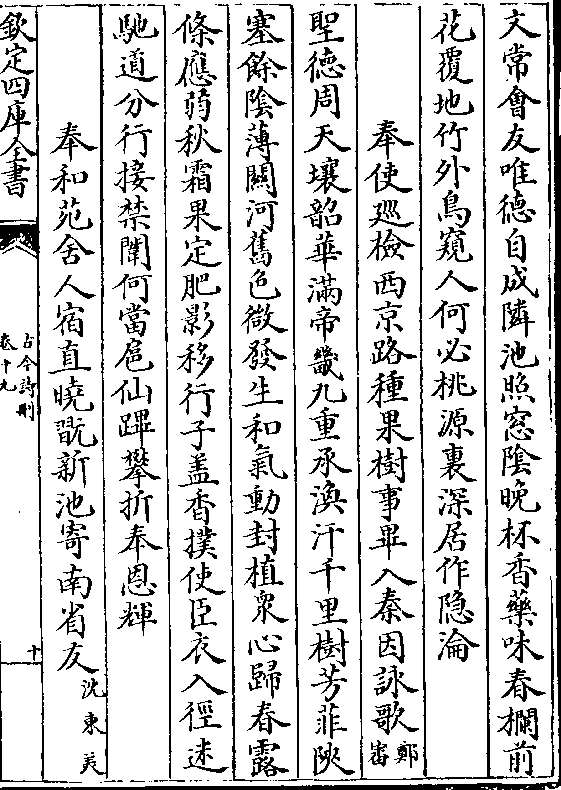 文常會友唯德自成隣池照窓陰晚杯香藥味春欄前
花覆地竹外鳥窺人何必桃源裏深居作隐淪
奉使廵檢西京路種果樹事畢入秦因詠歌 鄭審
聖德周天壤韶華滿帝畿九重承渙汗千里樹芳菲陜
塞餘陰薄關河舊色微發生和氣動封植衆心歸春露
條應弱秋霜果定肥影移行子盖香撲使臣衣入徑迷
馳道分行接禁闈何當扈仙蹕攀折奉恩輝
奉和苑舍人宿直曉翫新池寄南省友 沈東美
欽定四庫全書
古今詩刪
卷十九
十